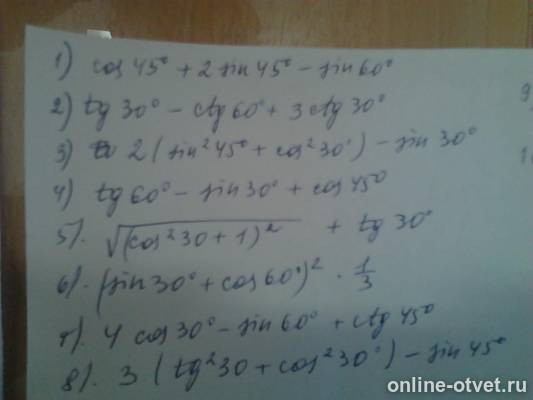 1) cos 45° + 2 sin 45° – sin 60°
2) tg 30° – ctg 60° + 3 ctg 30°
3) 2 (sin² 45° + cos² 30°) – sin 30°
4) tg 60° – sin 30° + cos 45°
5). √(cos² 30 + 1)² + tg 30°
6). (sin 30° + cos 60°)² · 1/3
7). 4 cos 30° – sin 60° + ctg 45°
8). 3 (tg² 30 + cos² 30°) – sin 45°
online-otvet.ru